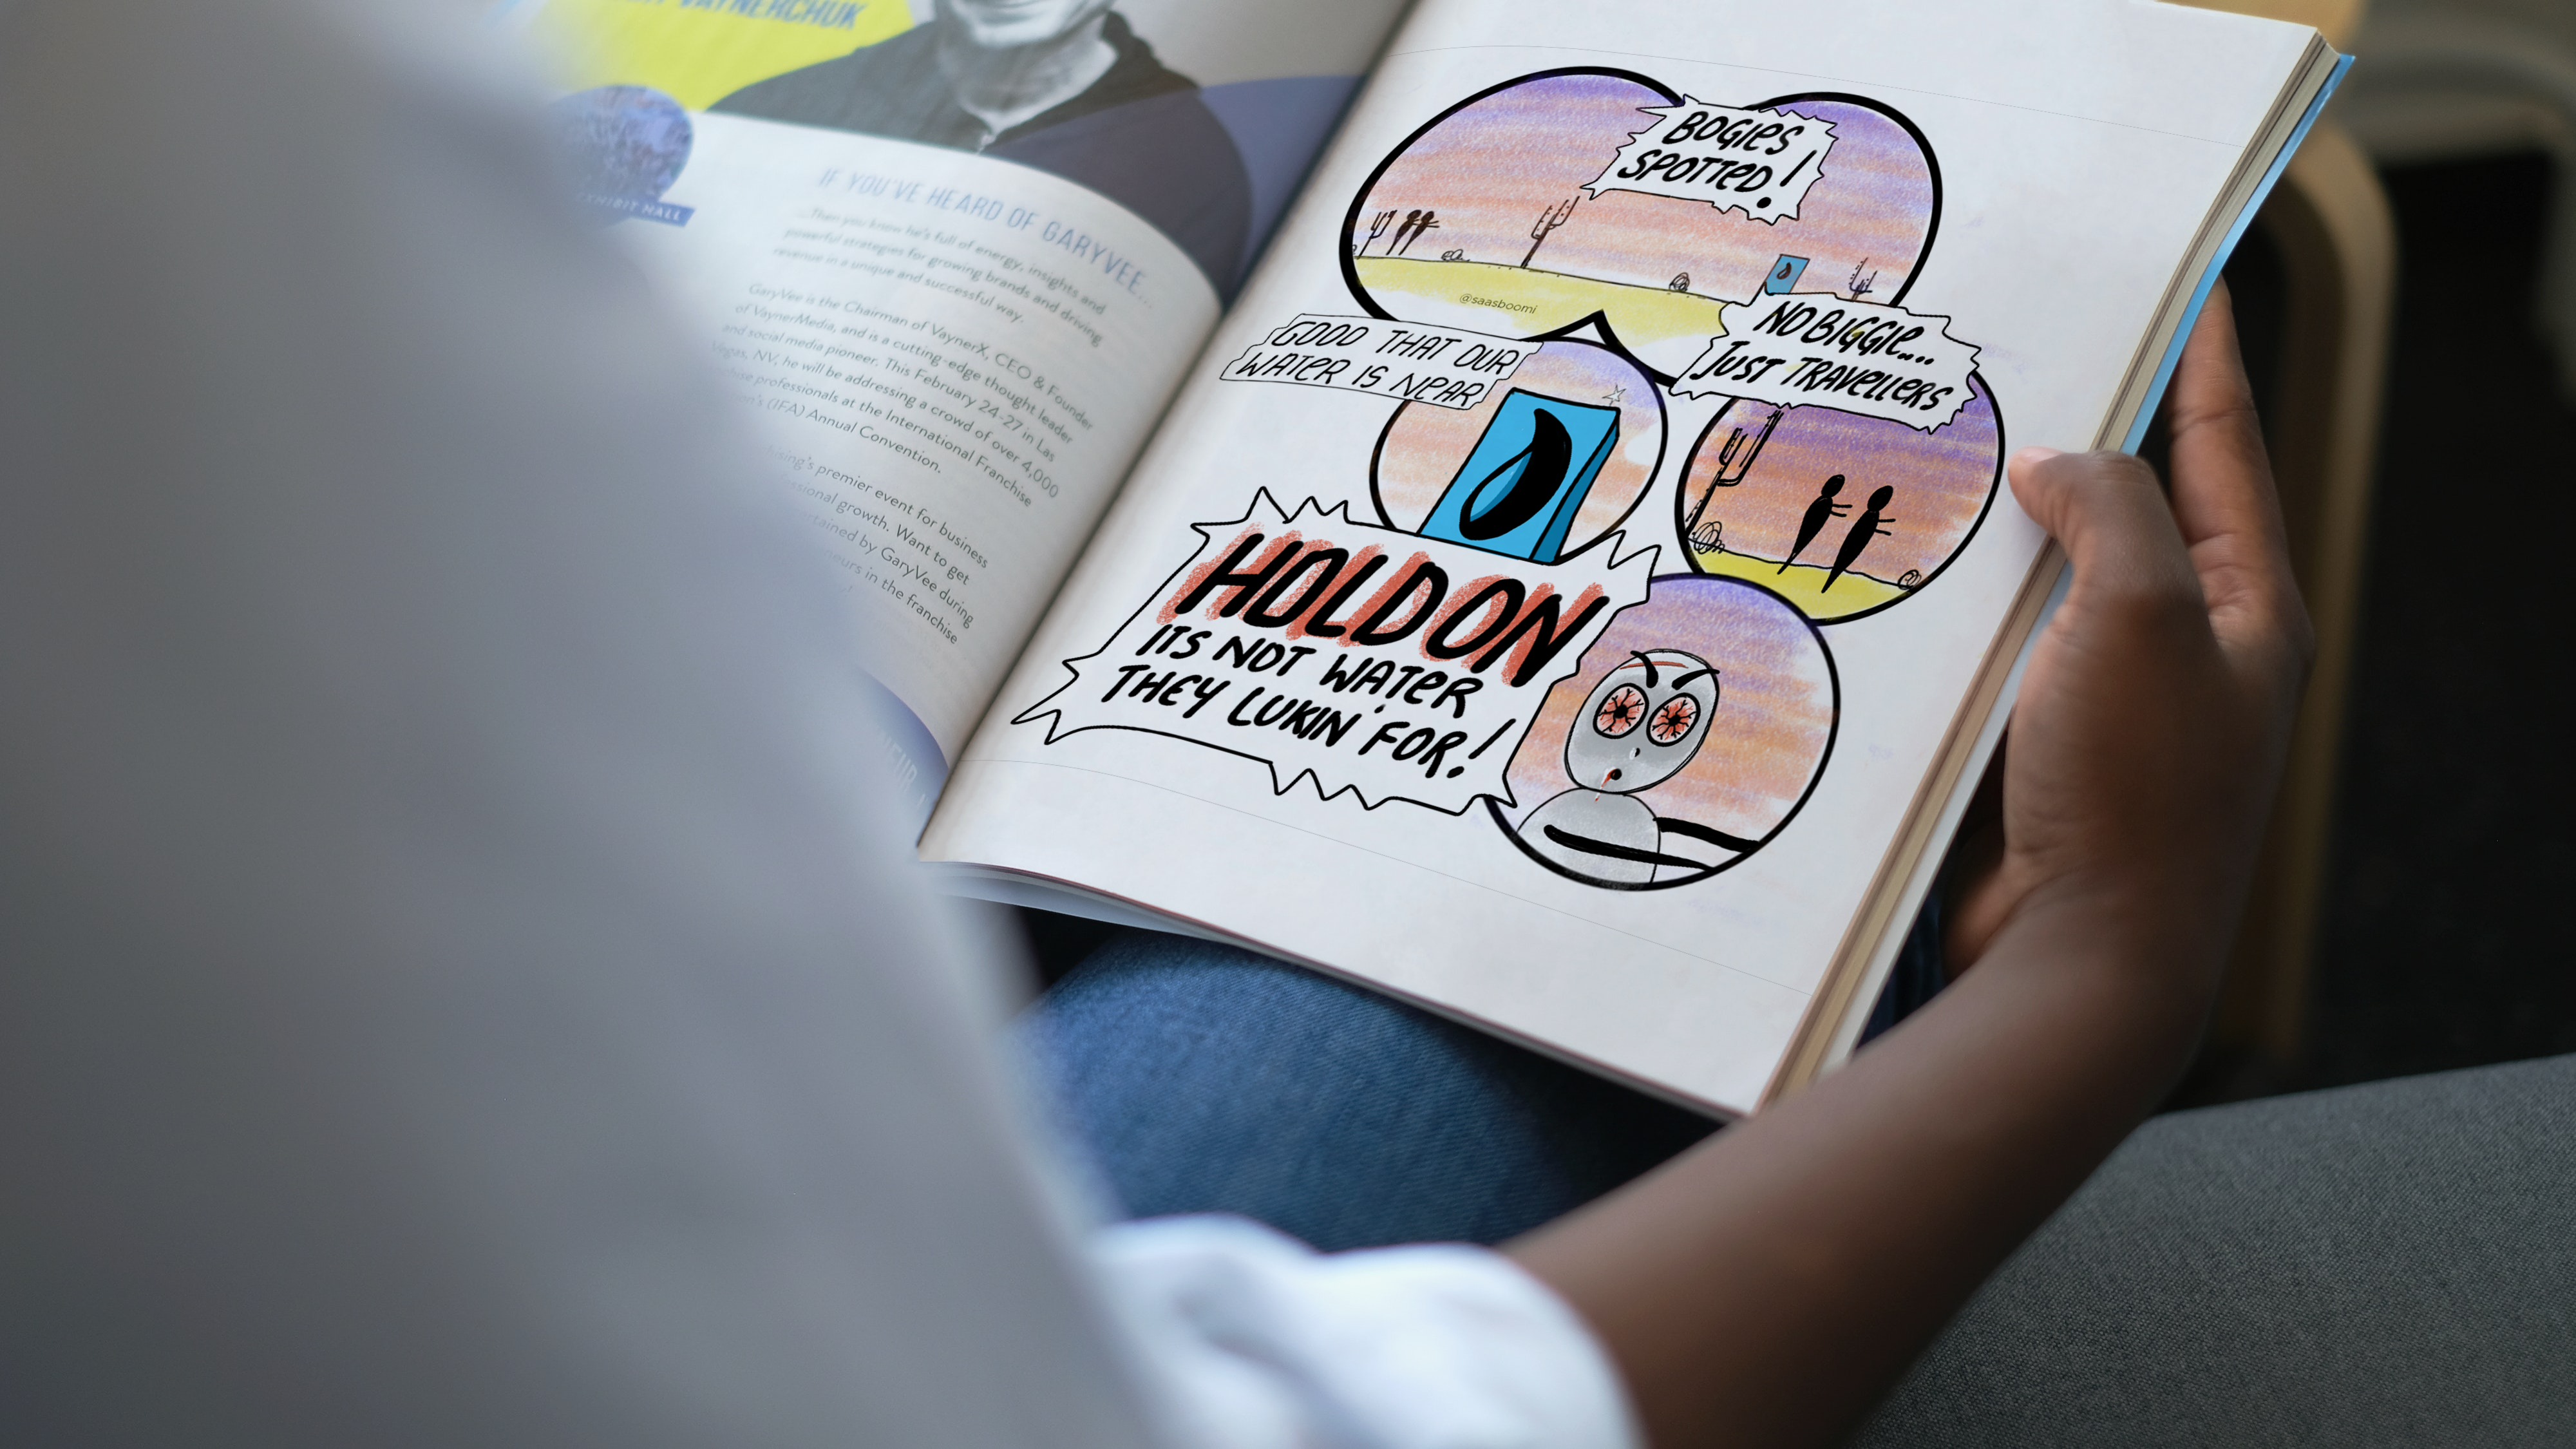 VAYNERCHUK
EXHIBIT HALL
IF YOU'VE HEARD OF GARYVEE...
...Then you know he's full of energy, insights and
powerful strategies for growing brands and driving
revenue in a unique and successful way.
GaryVee is the Chairman of VaynerX, CEO & Founder
of VaynerMedia, and is a cutting-edge thought leader
and social media pioneer. This February 24-27 in Las
Vegas, NV, he will be addressing a crowd of over 4,000
professionals at the International Franchise
(IFA) Annual Convention.
premier event for business
growth. Want to get
by GaryVee during
in the franchise
BOGIES
SPOTTED!
@saasboomi
NO BIGGIE...
JUST TRAVELLERS
GOOD THAT OUR
WATER IS NEAR
HOLD ON
ITS NOT WATER
THEY LUKIN' FOR!